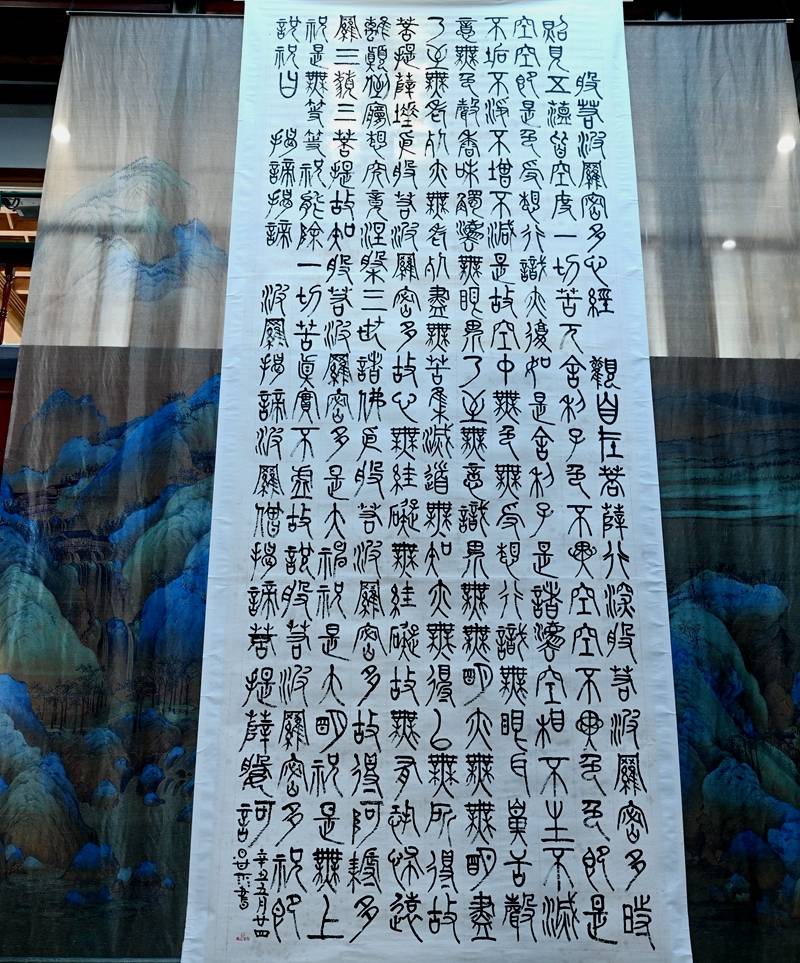 般若波羅密多心經 觀自在菩薩行深般若波羅密多時
照見五蘊皆空度一切苦厄舍利子色不異空空不異色色即是
空空即是色受想行識亦復如是舍利子是諸法空相不生不滅
不垢不淨不增不減是故空中無色無受想行識無眼耳鼻舌
意無色聲香味觸法無眼界乃至無意識界無無明亦無無明盡
乃至無老死亦無老死盡無苦集滅道無知亦無得以無所得故
菩提薩埵依般若波羅密多故心無罣礙無罣礙故無有恐怖遠
離顛倒夢想究竟涅槃三世諸佛依般若波羅密多故得阿耨多
羅三藐三菩提故知般若波羅密多是大神祝是大明祝是無上
祝是無等等祝能除一切苦真實不虛故說般若波羅密多祝即
說祝曰 揭諦揭諦 波羅揭諦波羅僧揭諦菩提薩婆訶
辛丑五月廿四
書